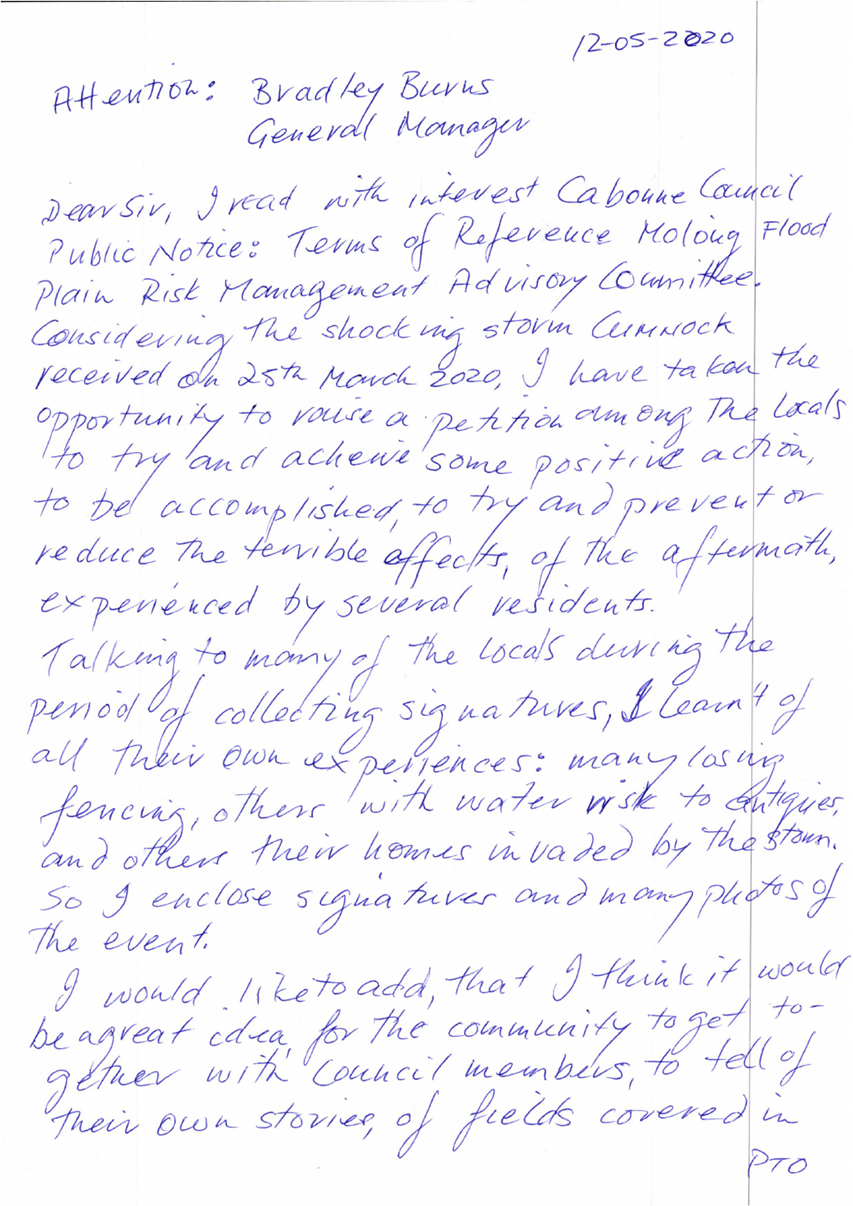 12-05-2020
Attention: Bradley Burns
General Manager
Dear Sir, I read with interest Cabonne Council
Public Notice: Terms of Reference Molong Flood
Plain Risk Management Advisory Committee.
Considering the shocking storm Cumnock
received on 25th March 2020, I have taken the
opportunity to raise a petition among the locals
to try and acheive some positive action,
to be accomplished, to try and prevent or
reduce the terrible affects, of the aftermath,
experienced by several residents.
Talking to many of the locals during the
period of collecting signatures, I learn't of
all their own experiences: many losing
fencing, others with water risk to antiques,
and others their homes invaded by the storm.
So I enclose signatures and many photos of
the event.
I would like to add, that I think it would
be a great idea, for the community to get to-
gether with Council members, to tell of
their own stories, of fields covered in
PTO